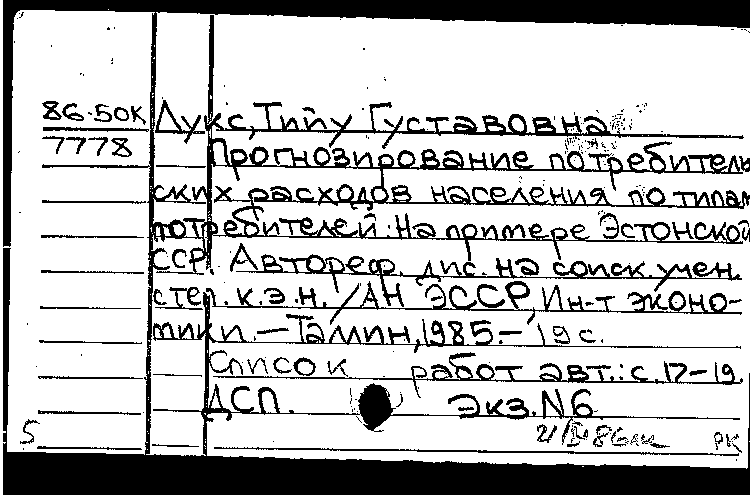 86-50К Лукс, Тийу Густавовна
7778 Прогнозирование потребитель
ских расходов населения по типам
потребителей: На примере Эстонской
ССР. Автореф. дис. на соиск. учен.
степ. к.э.н. / АН ЭССР, Ин-т эконо-
мики. — Таллин, 1985. — 19 с.
Список работ авт.: с. 17-19.
ДСП. Экз. N6
5 РК